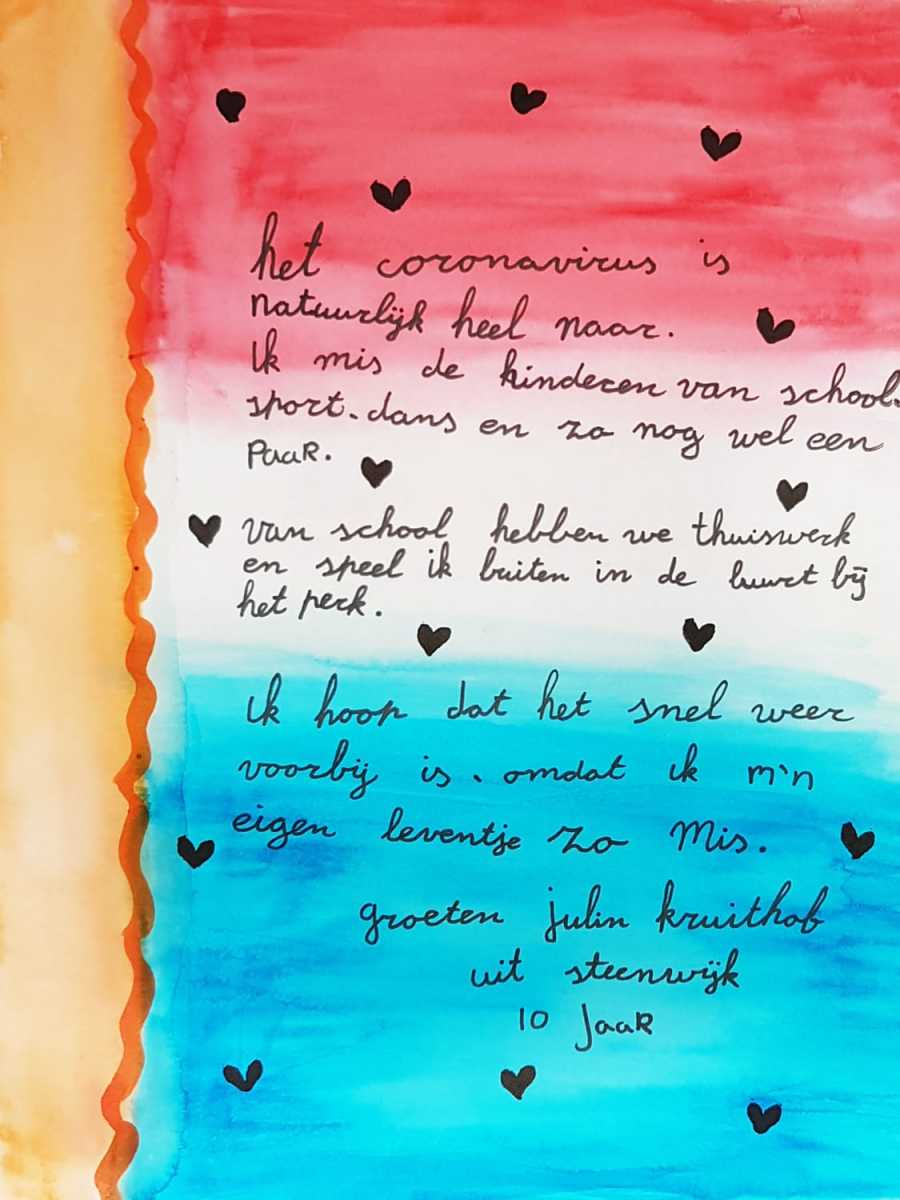 het coronavirus is
natuurlijk heel naar.
Ik mis de kinderen van school.
sport. dans en zo nog wel een
PaaR.
van school hebben we thuiswerk
en speel ik buiten in de buurt bij
het perk.
ik hoop dat het snel weer
voorbij is. omdat ik m'n
eigen leventje zo Mis.
groeten julin kruithof
uit steenwijk
10 JaaR